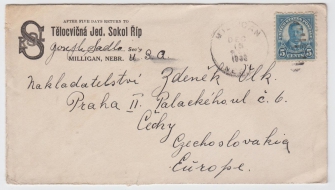 AFTER FIVE DAYS RETURN TO
Tělocvičná Jed. Sokol Říp
Joseph Sadlo Sec'y
MILLIGAN, NEBR. U S A
Nakladatelství Zdeněk Vlk.
Praha II. Palackého ul. č. 6.
Čechy
Czechoslovakia
Europe.
5 CENTS 5